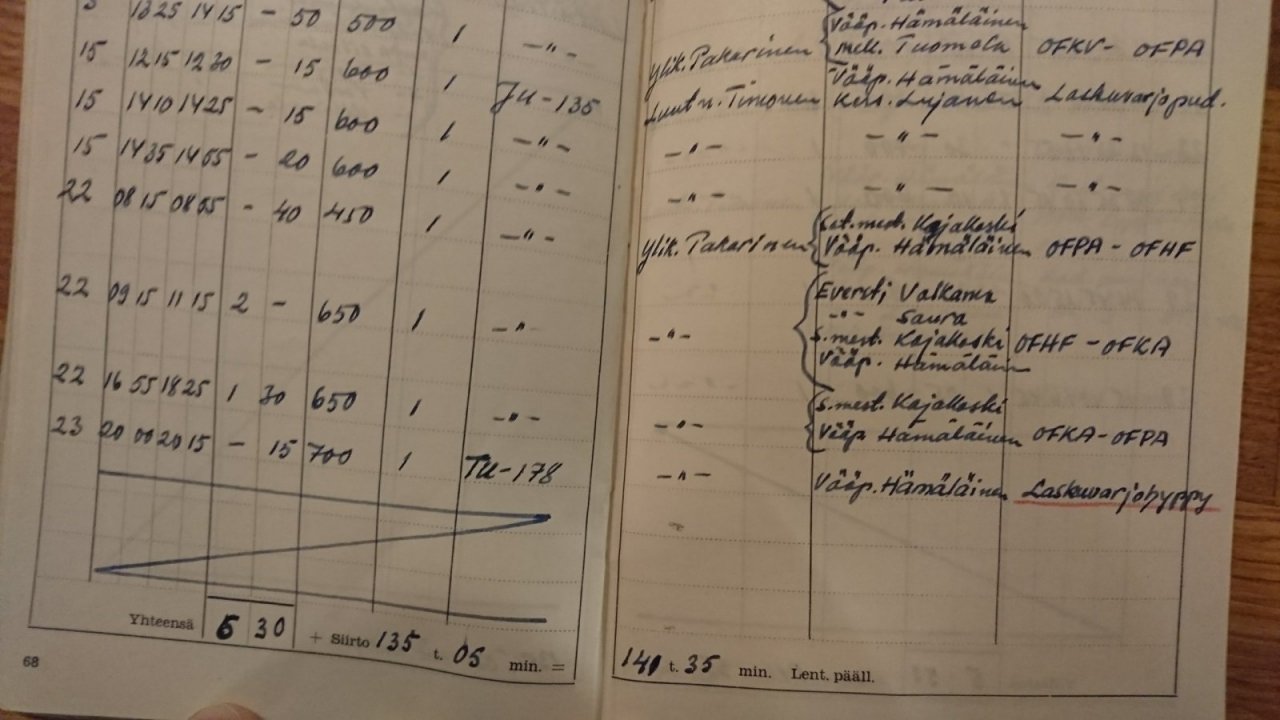 13 25 14 15 - 50 500 1 -"-
15 12 15 12 30 - 15 600 1 JU-135
15 14 10 14 25 - 15 600 1 -"-
15 14 35 14 55 - 20 600 1 -"-
22 08 15 08 55 - 40 450 1 -"-
22 09 15 11 15 2 - 650 1 -"-
22 16 55 18 25 1 30 650 1 -"-
23 20 00 20 15 - 15 700 1 TU-178
Yhteensä 5 30 + Siirto 135 t. 05 min. =
68
Vääp. Hämäläinen
Ylik. Pakarinen Tuomola OFKV- OFPA
Vääp. Hämäläinen
Luutn. Timonen Kers. Lujanen Laskuvarjopud.
-"- -"- -"-
-"- -"- -"-
Sot.mest. Kojakoski
Ylik. Pakarinen Vääp. Hämäläinen OFPA - OFHF
Eversti Valkama
-"- Saura
-"- S.mest. Kojakoski OFHF - OFKA
Vääp. Hämäläin
S.mest. Kojakoski
-"- Vääp Hämäläinen OFKA-OFPA
-"- Vääp. Hämäläinen Laskuvarjohyppy
141 t. 35 min. Lent. pääll.